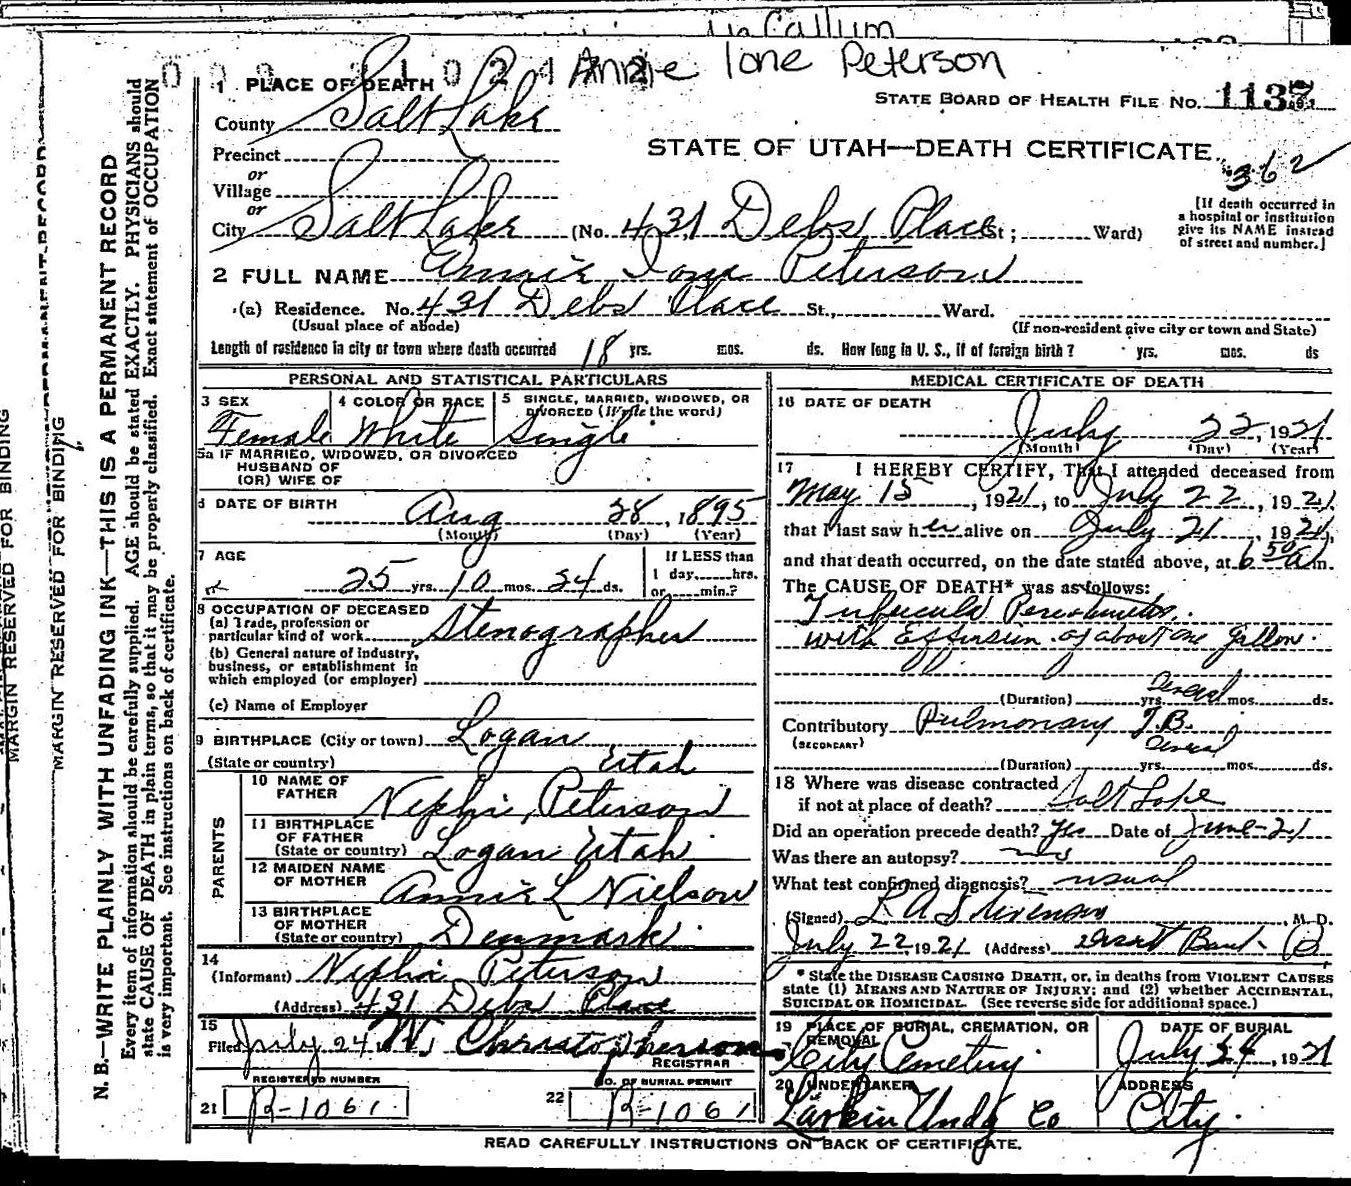 Callum
Annie Ione Peterson
1 PLACE OF DEATH
STATE BOARD OF HEALTH FILE No. 1137
County Salt Lake
STATE OF UTAH—DEATH CERTIFICATE.
Precinct
or
362
Village
or
[If death occurred in
a hospital or institution
give its NAME instead
of street and number.]
City Salt Lake (No. 431 Debs Place St; Ward)
2 FULL NAME Annie Ione Peterson
(a) Residence. No. 431 Debs Place St., Ward.
(Usual place of abode) (If non-resident give city or town and State)
Length of residence in city or town where death occurred 18 yrs. mos. ds. How long in U. S., if of foreign birth? yrs. mos. ds
PERSONAL AND STATISTICAL PARTICULARS
3 SEX 4 COLOR OR RACE 5 SINGLE, MARRIED, WIDOWED, OR
DIVORCED (Write the word)
Female White Single
5a IF MARRIED, WIDOWED, OR DIVORCED
HUSBAND OF
(OR) WIFE OF
6 DATE OF BIRTH Aug 28, 1895
(Month) (Day) (Year)
7 AGE If LESS than
25 yrs. 10 mos. 24 ds. 1 day, hrs.
or min.?
8 OCCUPATION OF DECEASED
(a) Trade, profession or
particular kind of work Stenographer
(b) General nature of industry,
business, or establishment in
which employed (or employer)
(c) Name of Employer
9 BIRTHPLACE (City or town) Logan
(State or country) Utah
PARENTS
10 NAME OF
FATHER Nephi Peterson
11 BIRTHPLACE
OF FATHER
(State or country) Logan Utah
12 MAIDEN NAME
OF MOTHER Annie L Nielson
13 BIRTHPLACE
OF MOTHER
(State or country) Denmark
14
(Informant) Nephi Peterson
(Address) 431 Debs Place
15
Filed July 24 Christopherson
REGISTRAR
REGISTERED NUMBER
21 R-1061
NO. OF BURIAL PERMIT
22 R-1061
MEDICAL CERTIFICATE OF DEATH
16 DATE OF DEATH
July 22, 1921
(Month) (Day) (Year)
17 I HEREBY CERTIFY, That I attended deceased from
May 15, 1921, to July 22, 1921,
that I last saw her alive on July 21, 1921,
and that death occurred, on the date stated above, at 6 50 a m.
The CAUSE OF DEATH* was as follows:
with Effusion of about one gallon.
(Duration) yrs. several mos. ds.
Contributory Pulmonary T.B.
(SECONDARY) several
(Duration) yrs. mos. ds.
18 Where was disease contracted
if not at place of death? Salt Lake
Did an operation precede death? yes Date of June-21
Was there an autopsy? no
What test confirmed diagnosis? usual
(Signed) L A Stevenson, M. D.
July 22, 1921 (Address) Desert Bank B
* State the DISEASE CAUSING DEATH, or, in deaths from VIOLENT CAUSES
state (1) MEANS AND NATURE OF INJURY; and (2) whether ACCIDENTAL,
SUICIDAL OR HOMICIDAL. (See reverse side for additional space.)
19 PLACE OF BURIAL, CREMATION, OR
REMOVAL
City Cemetery
DATE OF BURIAL
July 24, 1921
20 UNDERTAKER
Larkin Undg Co
ADDRESS
City.
READ CAREFULLY INSTRUCTIONS ON BACK OF CERTIFICATE.
MARGIN RESERVED FOR BINDING
MARGIN RESERVED FOR BINDING
N. B.—WRITE PLAINLY WITH UNFADING INK—THIS IS A PERMANENT RECORD
Every item of information should be carefully supplied. AGE should be stated EXACTLY. PHYSICIANS should
state CAUSE OF DEATH in plain terms, so that it may be properly classified. Exact statement of OCCUPATION
is very important. See instructions on back of certificate.